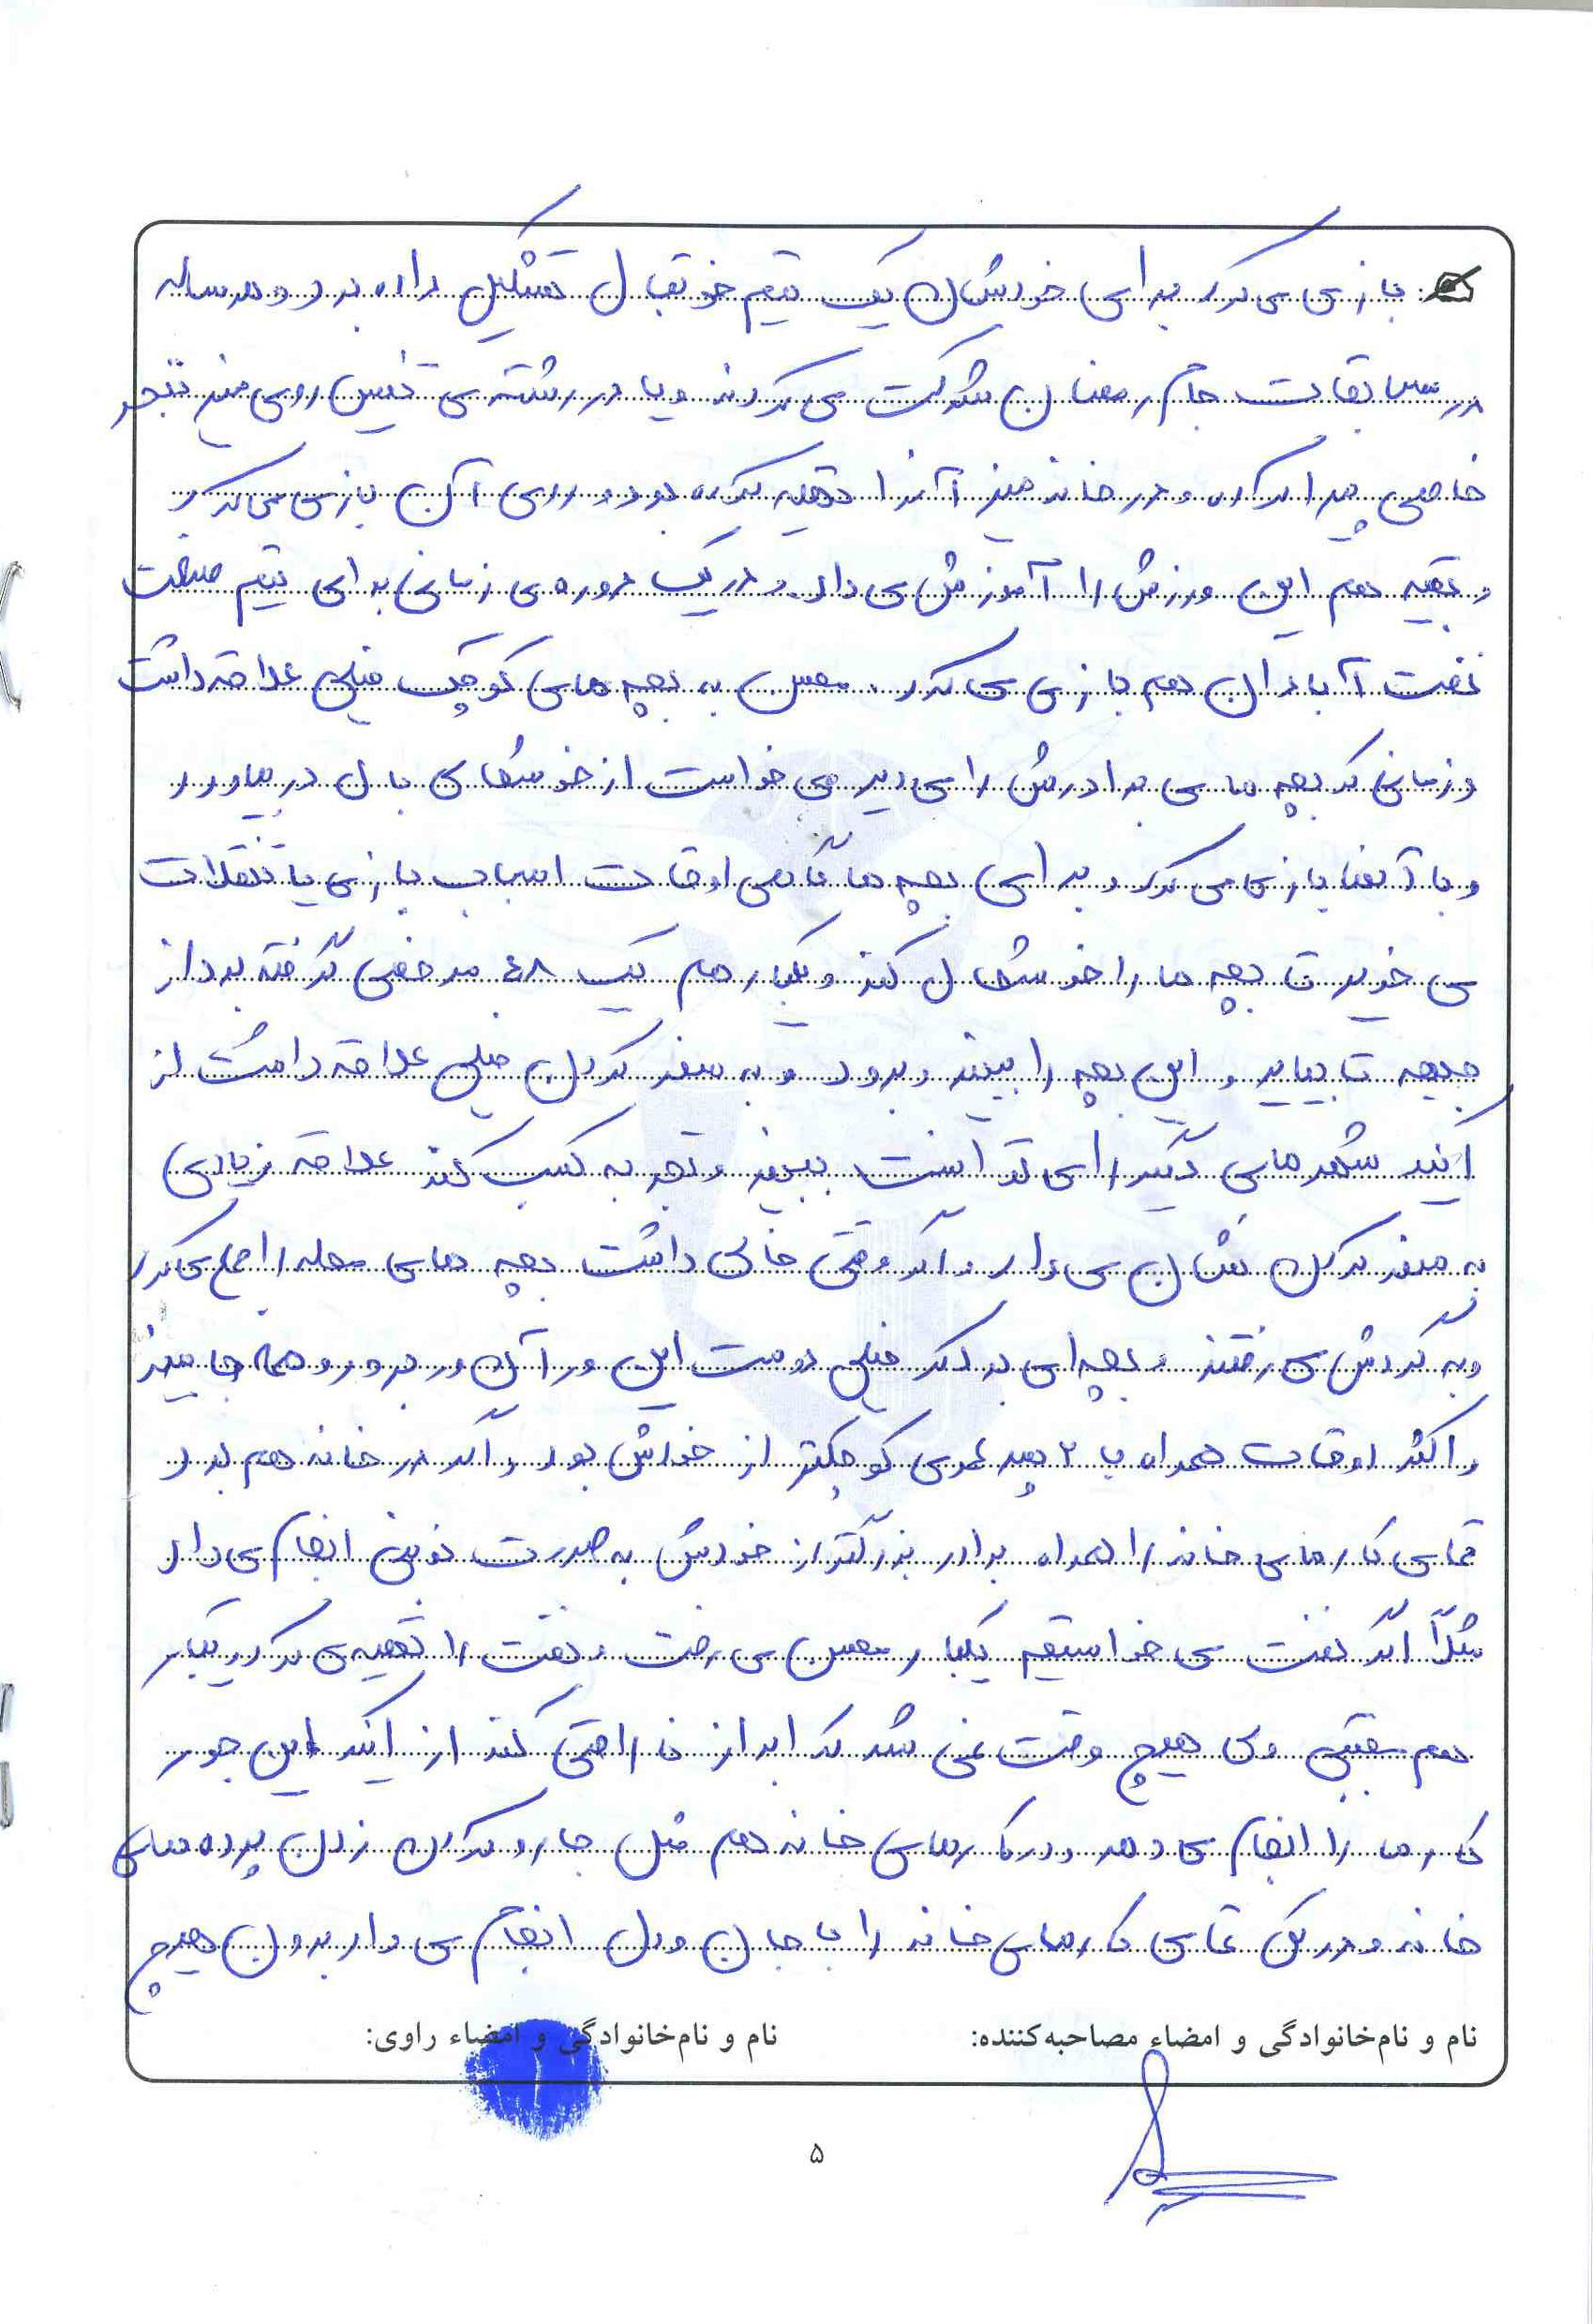 بازی می کرد برای خودشان یک تیم فوتبال تشکیل داده بود و هر ساله
در مسابقات جام رمضان شرکت می کردند و یا در رشته ی تنیس روی میز تبحر
خاصی پیدا کرده و در خانه میز آنرا تهیه کرده بود و روی آن بازی می کرد
و بقیه هم این ورزش را آموزش می داد. و در یک دوره ی زمانی برای تیم صنعت
نفت آبادان هم بازی می کرد. محسن به بچه های کوچک خیلی علاقه داشت
و زمانی که بچه های برادرش را می دید می خواست از خوشحالی بال در بیاورد
و با آنها بازی می کرد و برای بچه ها گاهی اوقات اسباب بازی یا تنقلات
می خرید تا بچه ها را خوشحال کند و یکبار هم یک ۴۸ مرخصی گرفته بود از
جبهه تا بیاید و این بچه را ببیند و برود و به سفر کردن خیلی علاقه داشت از
اینکه شهرهای دیگر را می توانست ببیند و تجربه کسب کند علاقه زیادی
به سفر کردن نشان می داد و اگر وقتی خالی داشت بچه های محله را جمع می کرد
و به گردش می رفتند و بچه ای بود که خیلی دوست این ور آن ور برود و همه جا ببیند
و اکثر اوقات همراه با ۲ پسر عموی کوچکتر از خودش بود و اگر در خانه هم بود
تمامی کارهای خانه را همراه برادر بزرگتر از خودش به صورت نوبتی انجام می داد
مثلاً اگر نفت می خواستیم یکبار محسن می رفت و نفت را تهیه می کرد و یکبار
هم مجتبی ولی هیچ وقت نمی شد که ابراز ناراحتی کند از اینکه این جور
کارها را انجام می دهد و در کارهای خانه هم مثل جارو کردن زدن پرده های
خانه و در کل تمامی کارهای خانه را با جان و دل انجام می داد بدون هیچ
نام و نام‌خانوادگی و امضاء مصاحبه‌کننده:
نام و نام‌خانوادگی و امضاء راوی:
۵